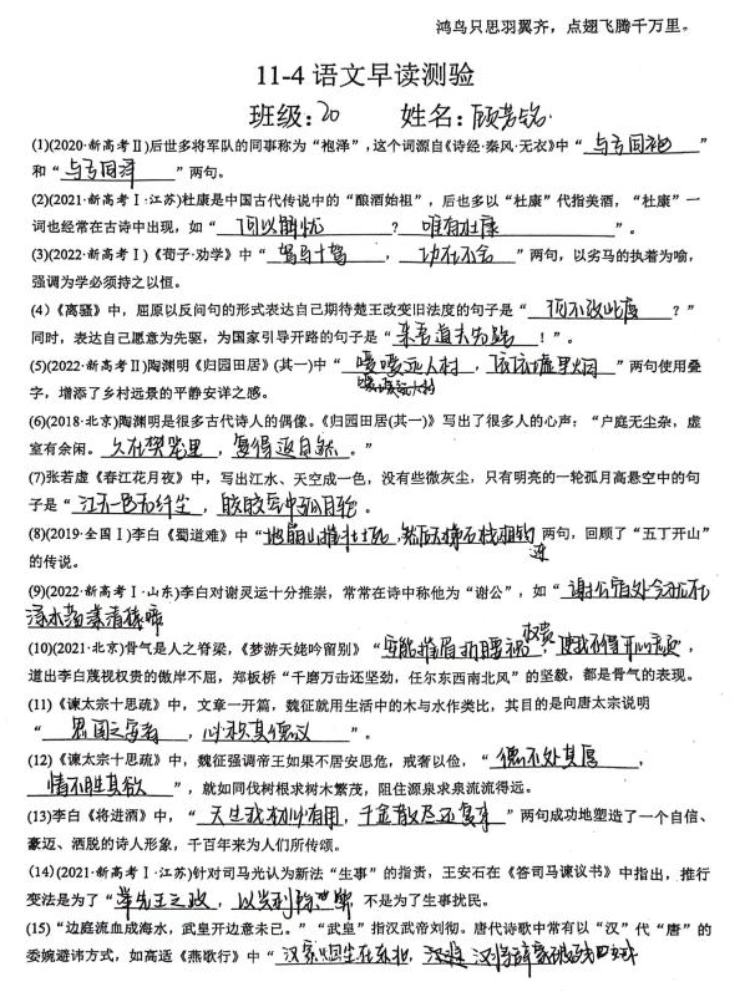 鸿鸟只思羽翼齐，点翅飞腾千万里。
11-4 语文早读测验
班级：20 姓名：顾芳铭
(1)(2020·新高考Ⅱ)后世多将军队的同事称为“袍泽”，这个词源自《诗经·秦风·无衣》中“与子同袍”
和“与子同泽”两句。
(2)(2021·新高考Ⅰ·江苏)杜康是中国古代传说中的“酿酒始祖”，后也多以“杜康”代指美酒，“杜康”一
词也经常在古诗中出现，如“何以解忧？唯有杜康”。
(3)(2022·新高考Ⅰ)《荀子·劝学》中“驽马十驾，功在不舍”两句，以劣马的执着为喻，
强调为学必须持之以恒。
(4)《离骚》中，屈原以反问句的形式表达自己期待楚王改变旧法度的句子是“何不改此度？”
同时，表达自己愿意为先驱，为国家引导开路的句子是“来吾道夫先路！”。
(5)(2022·新高考Ⅱ)陶渊明《归园田居》(其一)中“暧暧远人村，依依墟里烟”两句使用叠
暧暧远人村
字，增添了乡村远景的平静安详之感。
(6)(2018·北京)陶渊明是很多古代诗人的偶像。《归园田居(其一)》写出了很多人的心声：“户庭无尘杂，虚
室有余闲。久在樊笼里，复得返自然。”
(7)张若虚《春江花月夜》中，写出江水、天空成一色，没有些微灰尘，只有明亮的一轮孤月高悬空中的句
子是“江天一色无纤尘，皎皎空中孤月轮。
(8)(2019·全国Ⅰ)李白《蜀道难》中“地崩山摧壮士死，然后天梯石栈相钩连两句，回顾了“五丁开山”
的传说。
(9)(2022·新高考Ⅰ·山东)李白对谢灵运十分推崇，常常在诗中称他为“谢公”，如“谢公宿处今尚在
渌水荡漾清猿啼
(10)(2021·北京)骨气是人之脊梁，《梦游天姥吟留别》“安能摧眉折腰事权贵，使我不得开心颜，
道出李白蔑视权贵的傲岸不屈，郑板桥“千磨万击还坚劲，任尔东西南北风”的坚毅，都是骨气的表现。
(11)《谏太宗十思疏》中，文章一开篇，魏征就用生活中的木与水作类比，其目的是向唐太宗说明
“思国之安者，必积其德义”。
(12)《谏太宗十思疏》中，魏征强调帝王如果不居安思危，戒奢以俭，“德不处其厚，
情不胜其欲”，就如同伐树根求树木繁茂，阻住源泉求泉流流得远。
(13)李白《将进酒》中，“天生我材必有用，千金散尽还复来”两句成功地塑造了一个自信、
豪迈、洒脱的诗人形象，千百年来为人们所传颂。
(14)(2021·新高考Ⅰ·江苏)针对司马光认为新法“生事”的指责，王安石在《答司马谏议书》中指出，推行
变法是为了“举先王之政，以兴利除弊，不是为了生事扰民。
(15)“边庭流血成海水，武皇开边意未已。”“武皇”指汉武帝刘彻。唐代诗歌中常有以“汉”代“唐”的
委婉避讳方式，如高适《燕歌行》中“汉家烟尘在东北，汉将辞家破残贼